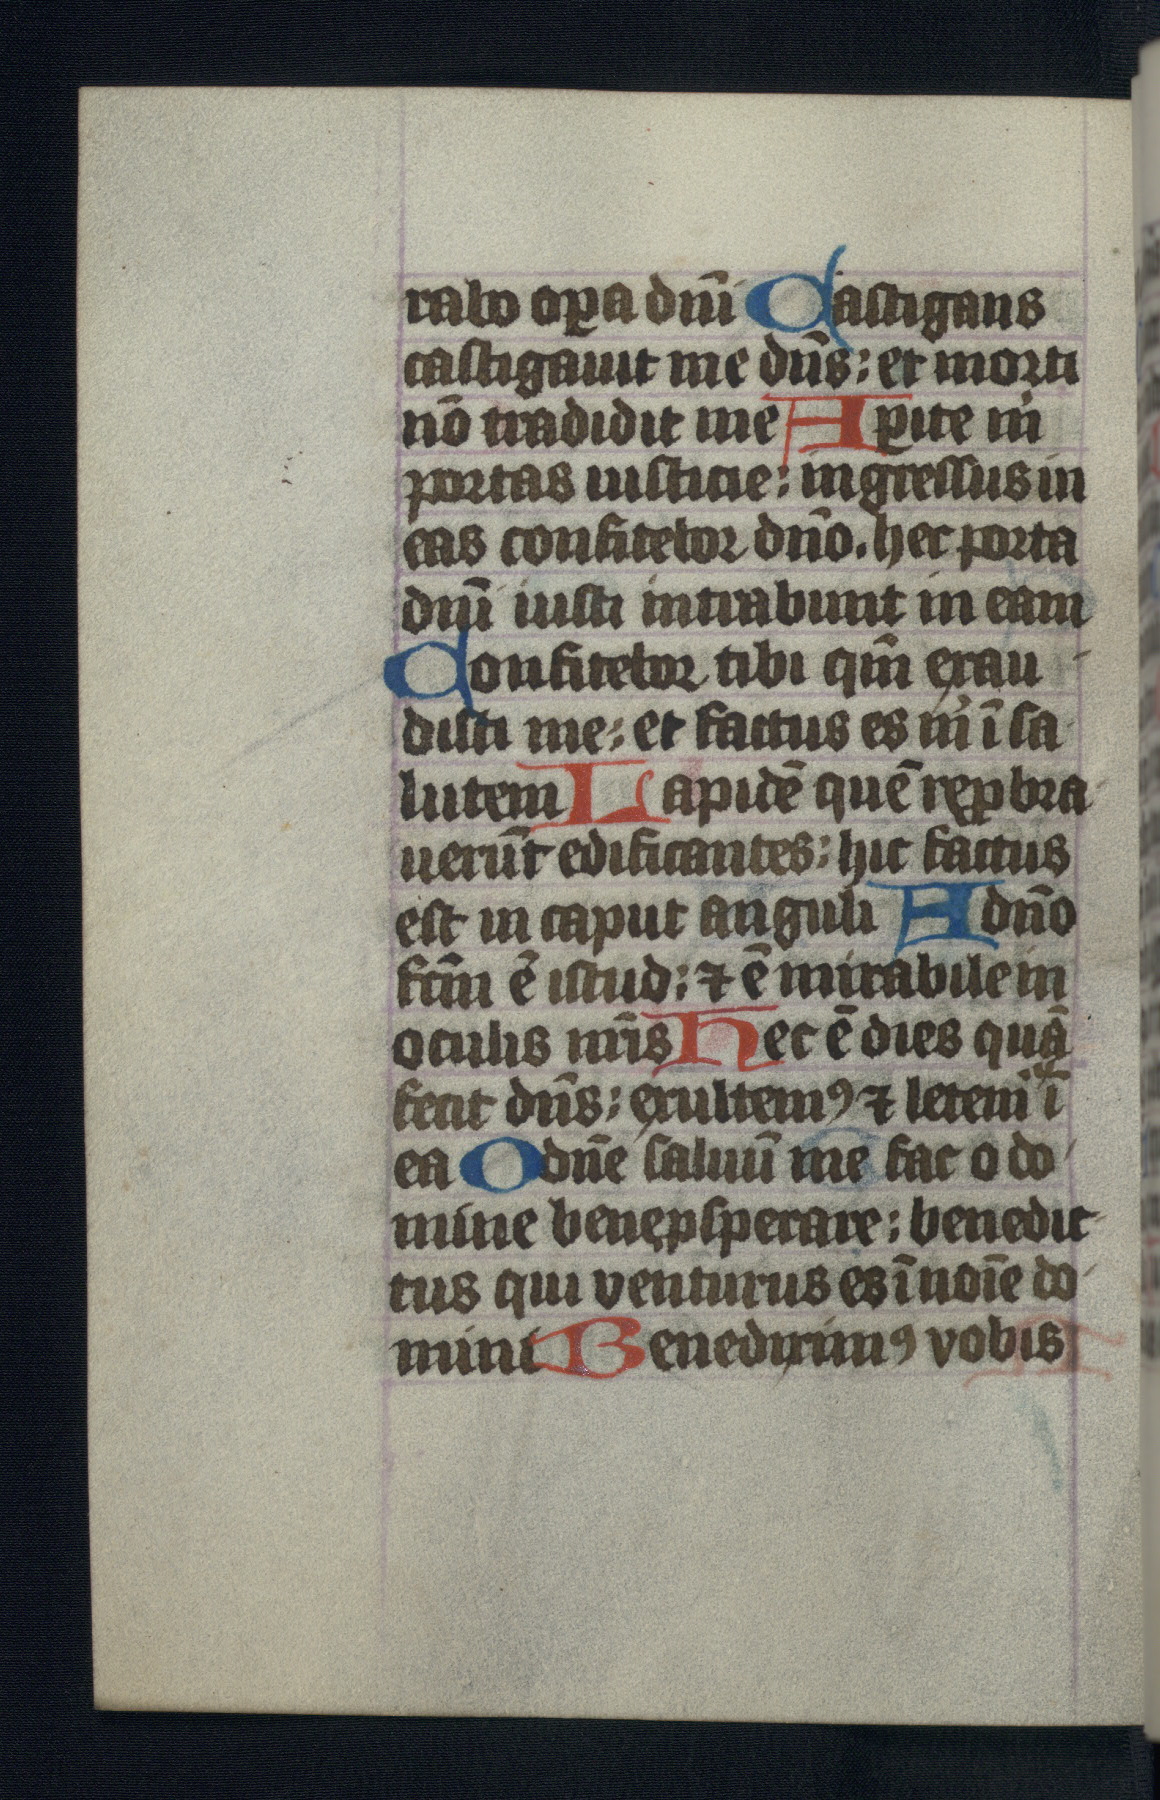 rabo oꝑa dnī Castigans
castigauit me dn̄s: et morti
nō tradidit me Aꝑite m̄
portas iusticie: ingressus in
eas confitebor dn̄o. hec porta
dnī iusti intrabunt in eam
Confitebor tibi qm̄ exau
disti me: et factus es m̄ ī sa
lutem Lapidē quē reꝓbra
uerūt edificantes: hic factus
est in caput anguli A dn̄o
fcm̄ ē istud: ⁊ ē mirabile in
oculis nr̄is Hec ē dies quā
fecit dn̄s: exultemꝰ ⁊ letem̄ ī
ea O dn̄e saluū me fac o do
mine bene ꝓsperare: benedic
tus qui venturus es ī noīe do
mini Benediximꝰ vobis